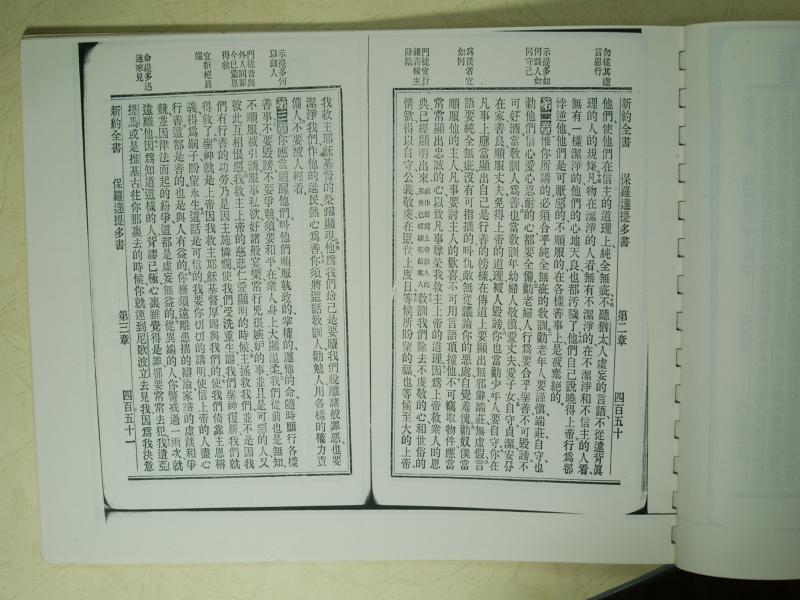 勿從其虛
言惡行
示提多如
何訓人如
何守己
爲僕者宜
如何
門徒宜行
諸善候主
降臨
新約全書 保羅達提多書 第二章 四百五十
他們使他們在信主的道理上純全無疵不聽猶太人虛妄的言語不從違背眞
理的人的規條凡物在潔淨的人看無有不潔淨的在不潔淨和不信主的人看
無有一樣潔淨的他們的心地天良也都汚穢了他們自己說曉得上帝行爲卻
悖逆他他們是可厭惡的不順服的在各樣善事上是被棄絕的
第二章惟你所講的必須合乎純全無疵的敎訓勸老年人要謹愼端莊自守也
勸他們信心愛心忍耐的心都要全備勸老婦人行爲要合乎聖善不可毀謗不
可好酒當敎訓人爲善也當敎訓年幼婦人敬愼愛丈夫愛子女自守貞潔安分
在家善良順服丈夫免得上帝的道理被人毀謗你也當勸少年人要自守你在
凡事上應當顯出自己是行善的榜樣在傳道上要顯出無邪僻端莊無虛假言
語要純全無疵沒有可指摘的叫仇敵無從議論你的惡處自覺羞愧勸奴僕當
順服他的主人凡事要討主人的歡喜不可用言語頂撞他不可竊取物件應當
常常顯出忠誠的心以致凡事尊榮我救主上帝的道理因爲上帝救衆人的恩
典已經顯明出來 敎訓我們除去不虔敬的心和世俗的
情欲得以自守公義敬虔在這世上度日等候所盼望的福也等候至大的上帝
示提多何
以訓人
門徒昔與
外人同罪
今已蒙恩
得救
宜拒絕異
端
命提多迅
速來見
我救主耶穌基督的榮耀顯現他爲我們捨己是要贖我們脫離諸般罪惡也要
潔淨我們作他的選民熱心爲善你須將這話敎訓人勸勉人用各樣的權力責
備人不要被人輕看
第三章你應當題醒他們叫他們順服執政的掌權的遵他的命隨時願行各樣
善事不要毀謗不要爭競須要和平在衆人身上大顯溫柔我們從前也是無知
不順服被引誘從事私欲好諸般宴樂常行兇狠嫉妒的事並且是可惡的人又
彼此互相恨惡我救主上帝的慈悲仁愛顯明的時候主拯救我們並不是因我
們有行善的功勞乃是因主施憐憫使我們受洗重生賜我們聖神復新我們就
得救了聖神就是上帝因我救主耶穌基督厚賜與我們的使我們倚靠主恩稱
義得爲嗣子盼望永生這話是可信的我要你切切的講明使信上帝的人盡心
行善這都是善的也是與人有益的你務須遠離愚拙的辯論家譜的虛談和爭
競並因律法而起的紛爭這都是虛妄無益的從異端的人你警戒過一兩次就
遠離他因爲知道這樣的人背謬已極心裏雖覺得是罪卻要常常去犯我遣亞
提馬或是推基古往你那裏去的時候你就速到尼歌波立去見我因爲我決意
新約全書 保羅達提多書 第三章 四百五十一